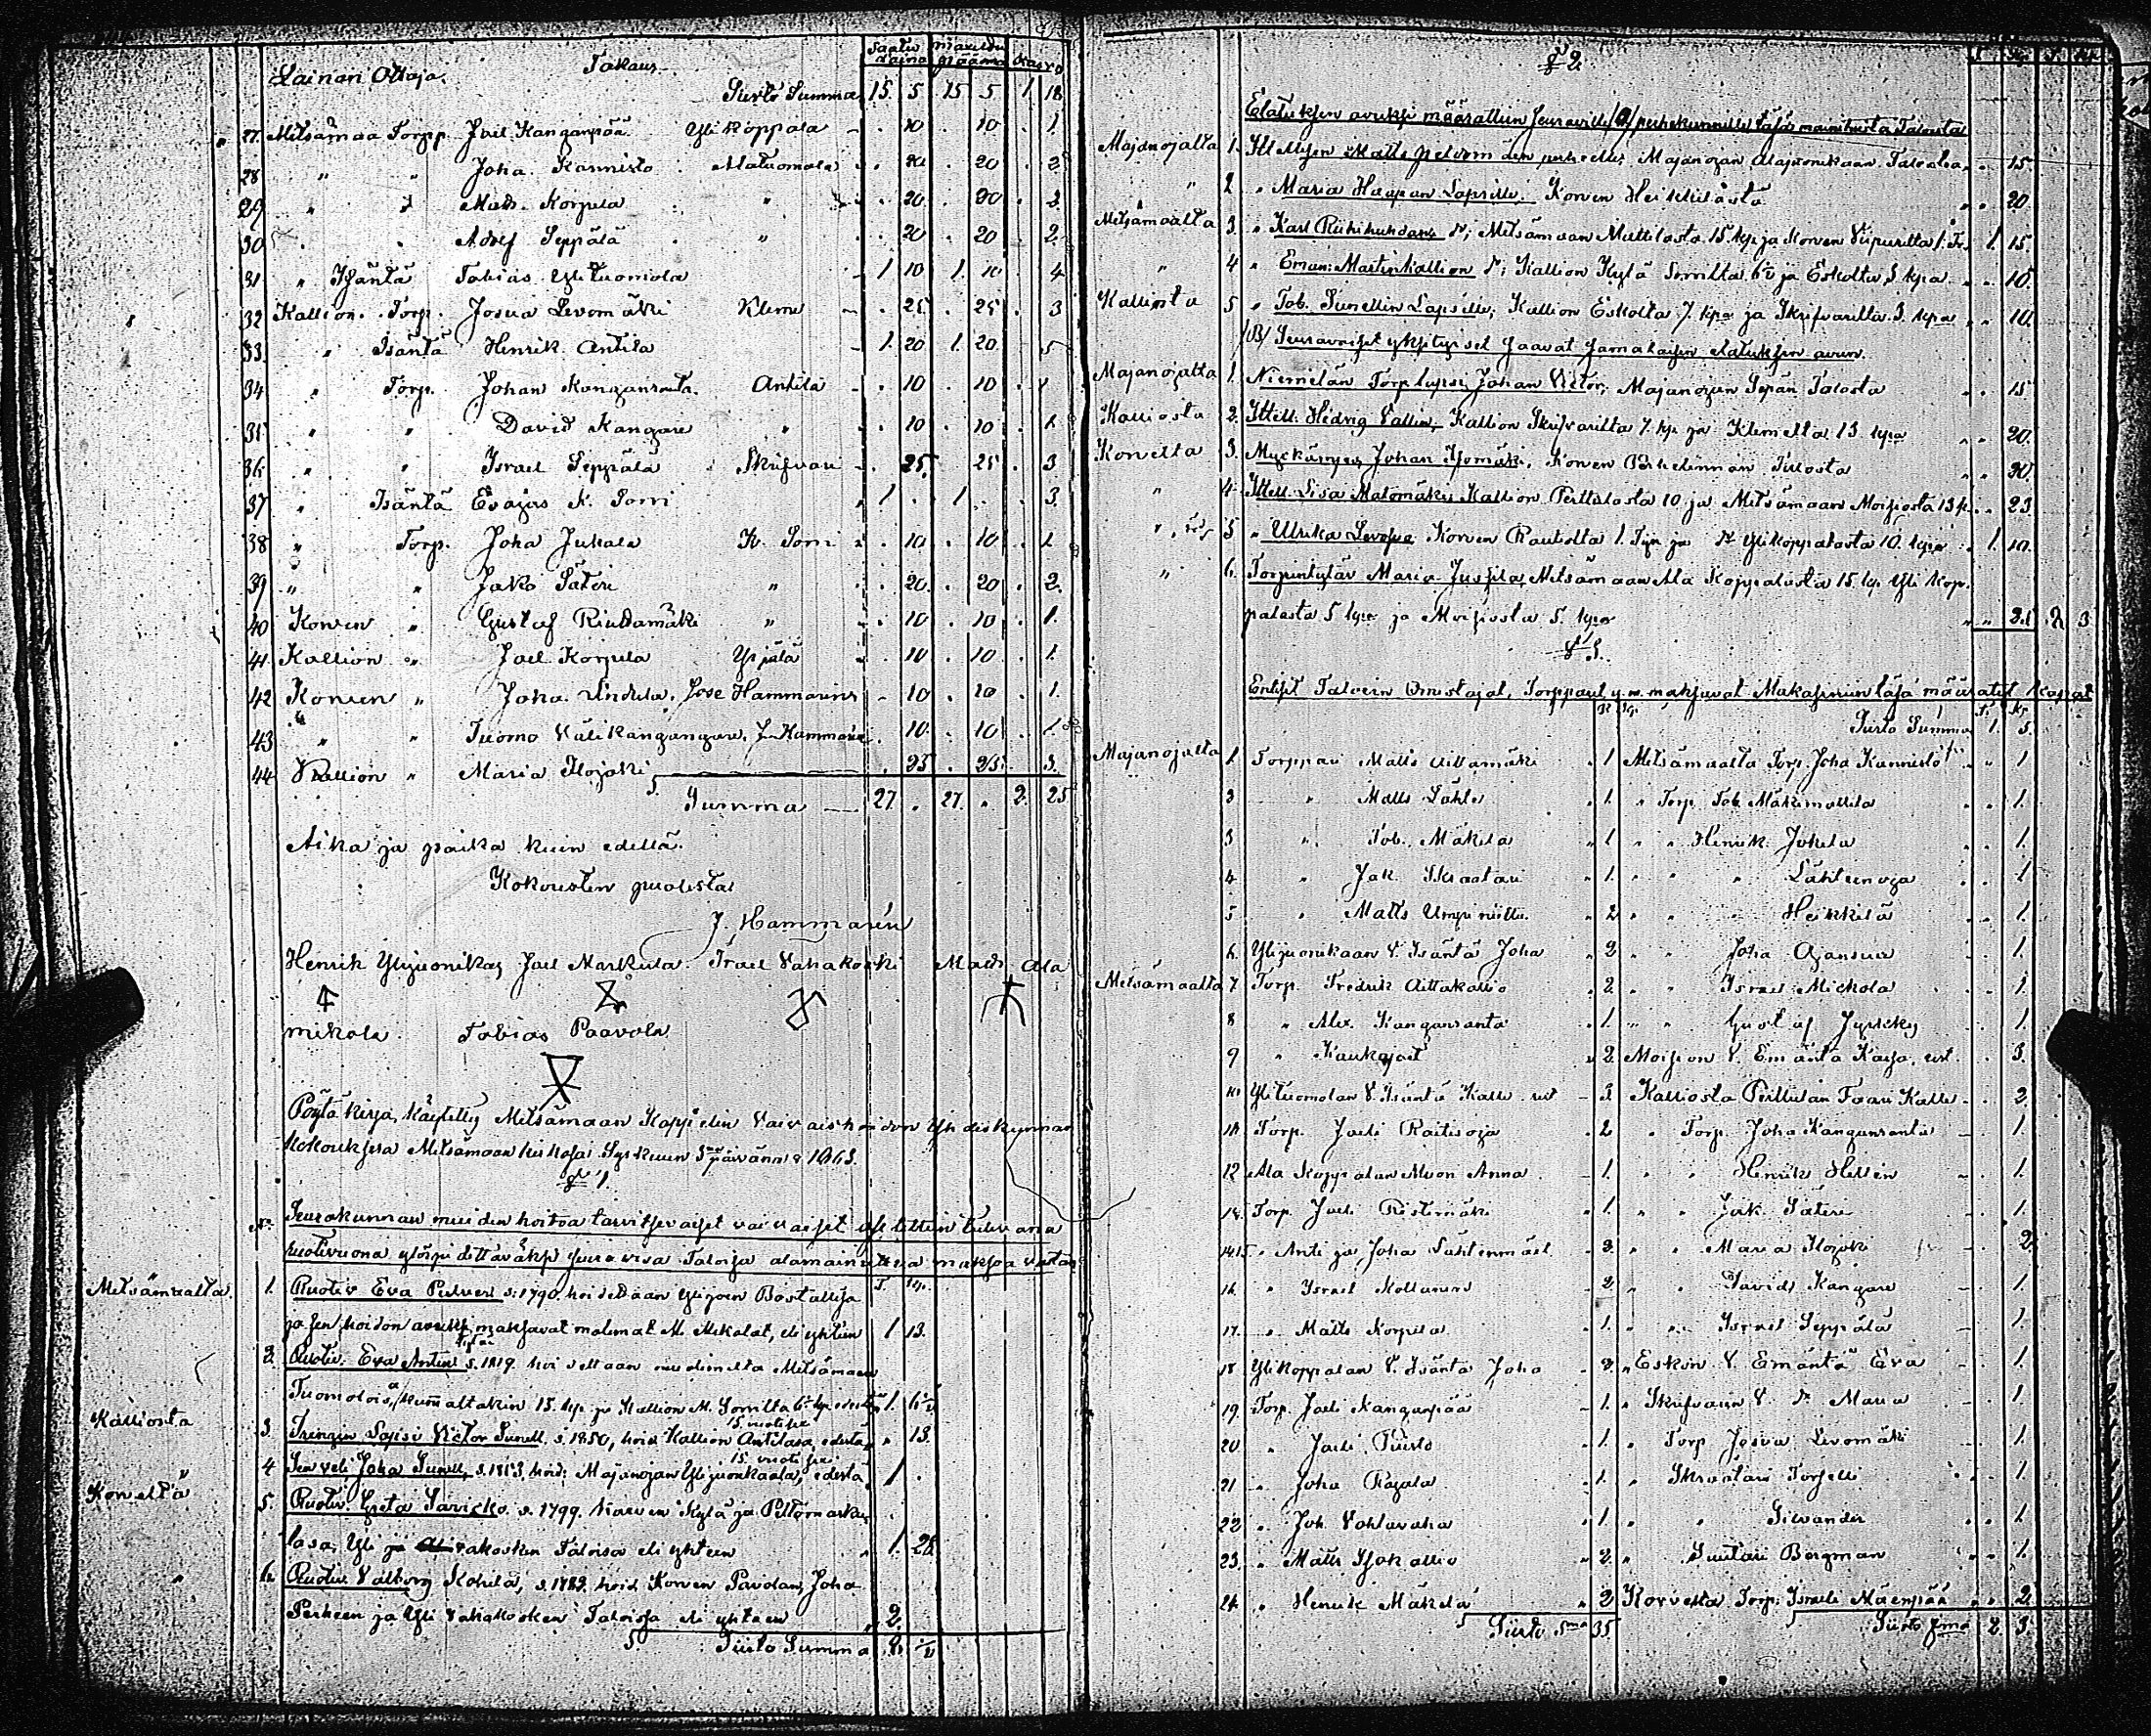 Lainan Ottaja. Takaus Saatu Laina maxettu pääoma Kasvo
Siirto Summa 15. 5 15 5 1 18
27. Metsämaa Torpp. Jael Kanganpää Yliköppala . 10 . 10 . 1
28 " " Joha. Kannisto . 20 . 20 . 2
29 " " Matts Korpela " . 20 . 20 . 2
30 " " Adolf Seppälä " . 20 . 20 . 2.
31 " Isäntä Tobias Ylituomola 1 10 1 10 4
32 Kallion Torp. Josua Levomäki Klemo . 25 . 25 . 3
33. " Isäntä Henrik Antila 1 20 1 20 5
34 " Torp. Johan Kanganranta Antila . 10 . 10 . 1
35 " " David Kangare " . 10 . 10 . 1
36 " " Israel Seppälä Skrifvari . 25 . 25 . 3
37 " Isäntä Esajas K. Sorri 1 . 1 . . 3.
38 " Torp. Joha Jukala K. Sorri . 10 . 10 . 1
39 " " Jako Säteri " . 20 . 20 . 2.
40 Korven " Gustaf Rindamäki " . 10 . 10 . 1.
41 Kallion " Jael Korpela Ypjälä . 10 . 10 . 1.
42 Korven " Joha. Undela. Jose Hammarins . 10 . 10 . 1.
43 " " Tuomo Välikangangare. J. Hammarin . 10 . 10 . 1
44 Kallion " Maria Ilojoki . 25 . 25 . 3.
Summa 27 . 27 . 2. 25
Aika ja paika kuin edellä.
Kokousten puolesta
J. Hammarén
Henrik Ylijuonikas Jael Markula Israel Vahakoski Matts Ala
mikola Tobias Paavola
Pöytäkirja, käytetty Metsämaan Kappelin Vaivaishoidon Yhdeskunnan
kokouksesa Metsämaan kirkosa Syyskuun päivännä 1865.
§ 1.
Seurakunnan muiden hoitoa tarvitsevaiset vaivaiset tulevana
ruotivuona ylöspidettäväksi seuravisa Taloisa alamainittua maksoa vastan
Metsämaalta 1. Ruotiv Eva Pulveri s. 1790 hoidetaan Bostallisa T. kp.
ja sen hoidon avuksi maksavat molemat M. Mikolat, eli yhteen 1 13.
2. Ruotiv. Eva Antin tytär s. 1819. hoidettaan Metsämaan
Tuomoloisa, kummaltakin 15. kp. ja Kallion M. Sorrilta 1. 6½
Kalliosta 3. Lapsi Victor Sunell s. 1850, hoid. Kallion Antilasa, edestä " 13.
4 Sen veli Joha Sunell, s. 1853, hoid: Majanojan Ylijuonikaala, edestä 1 .
Korvelta 5. Ruotiv. Greta s. 1799. Korven Kylä ja
lasa, Yli ja vakosken Taloisa eli yhteen 1. 28
" 6. Ruotiv. Valborg Kohila, hoid. Korven Joha
Perheen ja Yli Vahakosken Taloisa eli yhteen " 2.
Siirto Summa 8. ½
§ 2.
T. Kp. T. Kp.
Elatuksen avuksi määrättiin seuraville /a/ perhekunnille täsä mainitusta Talosta
Majanojalta 1. Itsellisen Matts perheelle, Majanojan Talosta " 15
" 2 " Maria Haapan Lapsille. Korven Heikkilästä " 20
Metsämaalta 3. " Karl Riihihuhdans d:o; Metsämaan Mattilasta 15 kp. ja Korven Viipurilta 1. T. 1. 15.
" 4 " Eman: Martinkallion d:o; Kallion Kylä Sorrilta 6½ ja Eskolta 3. kpa " 10.
Kalliosta 5 " Tob. Sunellin Lapsille; Kallion Eskolta 7. kpa ja Skrifvarilta 3. kpa " 10.
/B/ Seuravaiset yksityiset saavat samalaisen elatuksen avun.
Majanojalta 1. Niemelän Torp lapsi Johan Victor; Majanojan Sepän Talosta " 15
Kalliosta 2. Itsell. Hedvig Vallin, Kallion Skrifvarilta 7. kp. ja Klemelta 13 kpa " 20.
Korvelta 3. Johan Isomäki, Korven Talosta " 20.
" 4. Itsell. Lisa Malomäki Kallion Perttulasta 10 ja Metsämaan Moisiosta 13 k. " 23
" 5 " Ulrika Levosen Korven Rautolta 1. Tyn ja d:o Yliköppalasta 10. kpa 1. 10.
" 6. Torpintytär Maria Jussila, Metsämaan Ala Köppalasta 15 kp. Yli Köp-
palasta 5 kpa ja Moisiosta 5. kpa " 25 2 3
§ 3.
Entiset Talvein Omistajat, Torpparit y.m. maksavat Makasiinin täsä määrätyt Kapat
Siirto Summa 1. 5.
Majanojalta 1 Torppari Matts Uittamäki 1 Metsämaalta Torp. Joha Kannisto " 1
2 " Matts Lähte 1. " Torp Tob. Mäkimattila " 1.
3 " Tob. Mäkelä 1 " " Henrik Jokela 1.
4 " Jak. Skraatari 1. " " Lähteenoja 1
5 " Matts Umpiniittu 2 " " Heikkilä 1.
6. Ylijuonikaan V. Isäntä Joha 2 " " Joha Ojansuu 1.
Metsämaalta 7 Torp. Fredrik Aittakallio 2. " " Israel Mickola 1.
8 " Alex. Kanganranta 1. " " Gustaf 1.
9 " 2. Moision V. Emäntä Kaisa 3.
10 Ylituomolan V. Isäntä Kalle 3 Kalliosta Perttulan Faari Kalle 2.
11 Torp. Jaeli Raitisoja 2 " Torp. Joha Kanganranta 1.
12 Ala Köppalan Muori Anna 1. " " Henrik Hellin 1.
13. Torp. Jaeli Ristimäki 1. " " Jak. Säteri 1.
14.15. " Anti ja Joha Lähtenmäel. 3. " " Maria Ilojoki 2
16. " Israel 2 " " David Kangare 1.
17. " Matts Korpela 1. " " Israel Seppälä 1
18 Yliköppalan V. Isäntä Joha 2. " Eskon V. Emäntä Eva 1.
19. Torp. Jaeli Kanganpää 1. " Skrifvarin V. d:o Maria 1.
20 " Jaeli 1. " Torp Josua Levomäki 1.
21 " Joha Rajala 1. " Skraatari Torfelli 1
22 " Joh. 1 " " Silvander 1.
23. " Matts Isokallio 2. " Suutari Bergman 1.
24. " Henrik Mäkelä 2 Korvelta Torp. Israeli Mäenpää 2.
Siirto Sma 35 Siirto Sma 2. 3.